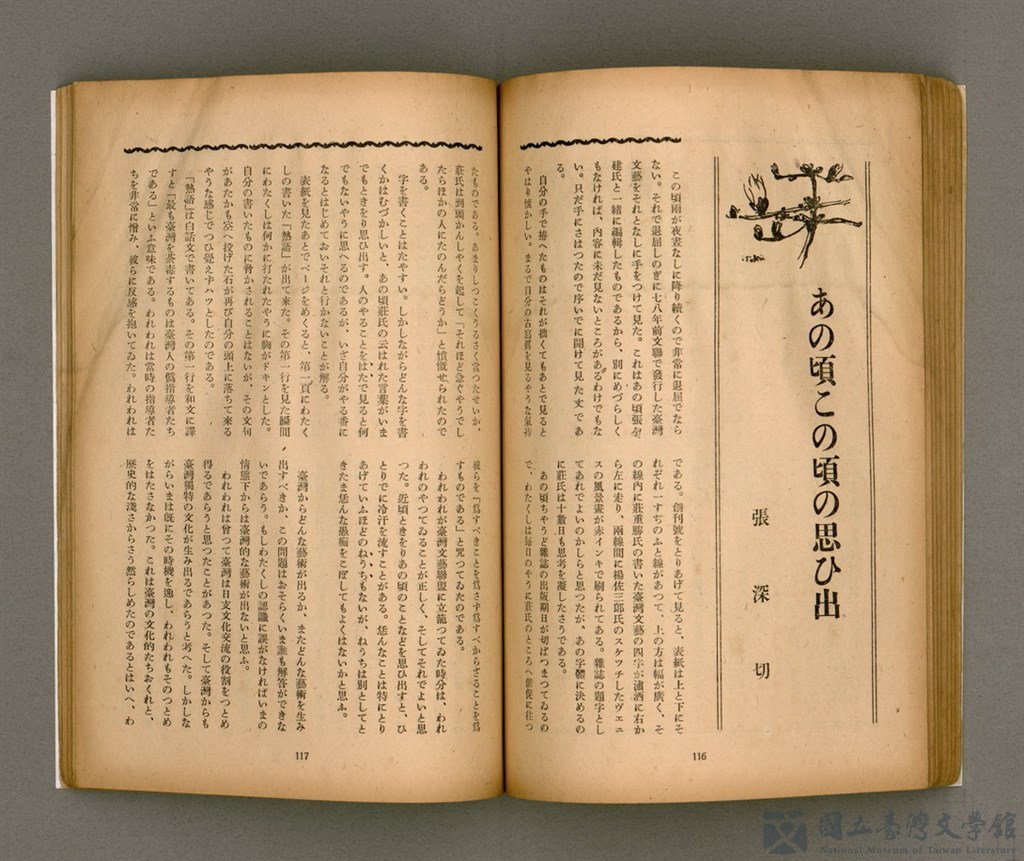 あの頃この頃の思ひ出
張深切
この頃雨が夜晝なしに降り續くので非常に退屈でなら
ない。それで退屈しのぎに七八年前文聯で發行した臺灣
文藝をそれとなしに手をつけて見た。これはあの頃張星
建氏と一緒に編輯したものであるから、別にめづらしく
もなければ、内容に未だ見ないところがあるわけでもな
い。只だ手にさはつたので序いでに開けて見た丈であ
る。
自分の手で拵へたものはそれが拙くてもあとで見ると
やはり懷かしい。まるで自分の古寫眞を見るやうな氣持
である。創刊號をとりあげて見ると、表紙は上と下にそ
れぞれ一すぢのふと線があつて、上の方は幅が廣く、そ
の線内に莊重勝氏の書いた臺灣文藝の四字が瀟洒に右か
ら左に走り、兩線間に楊佐三郎氏のスケツチしたヴエニ
スの風景畫が赤インキで刷られてある。雜誌の題字とし
てあれでよいのかしらと思つたが、あの字體に決めるの
に莊氏は十數日も思考を凝したさうである。
あの頃ちやうど雜誌の出版期日が切ばつまつてゐるの
で、わたくしは毎日のやうに莊氏のところへ催促に往つ
116
たものである。あまりしつこくうるさく當つたせいか、
莊氏は到頭かんしやくを起して「それほど急ぐやうでし
たらほかの人にたのんだらどうか」と憤慨せられたので
ある。
字を書くことはたやすい。しかしながらどんな字を書
くかはむづかしいと、あの頃莊氏の云はれた言葉がいま
でもときをり思ひ出す。人のやることをはたで見ると何
でもないやうに思へるのであるが、いざ自分がやる番に
なるとはじめておいそれと行かないことが解る。
表紙を見たあとでページをめくると、第一頁にわたく
しの書いた「熱語」が出て來た。その第一行を見た瞬間
にわたくしは何かに打たれたやうに胸がドキンとした。
自分の書いたものに脅かされることはないが、その文句
があたかも空へ投げた石が再び自分の頭上に落ちて來る
やうな感じでつひ覺えずハツとしたのである。
「熱語」は白話文で書いてある。その第一行を和文に譯
すと「最も臺灣を荼毒するものは臺灣人の僞指導者たち
である」といふ意味である。われわれは當時の指導者た
ちを非常に憎み、彼らに反感を抱いてゐた。われわれは
彼らを「爲すべきことを爲さず爲すべからざることを爲
すものである」と咒つてゐたのである。
われわれが臺灣文藝聯盟に立籠つてゐた時分は、われ
われのやつてゐることが正しく、そしてそれでよいと思
つた。近頃ときをりあの頃のことなどを思ひ出すと、ひ
とりでに冷汗を流すことがある。恁んなことは特にとり
あげていふほどのねうちもないが、ねうちは別としてと
きたま恁んな愚痴をこぼしてもよくはないかと思ふ。
臺灣からどんな藝術が出るか、またどんな藝術を生み
出すべきか、この問題はおそらくいま誰も解答ができな
いであらう。もしわたくしの認識に誤がなければいまの
情態下からは臺灣的な藝術が出ないと思ふ。
われわれは曾つて臺灣は日支文化交流の役割をつとめ
得るであらうと思つたことがあつた。そして臺灣からも
臺灣獨特の文化が生み出るであらうと考へた。しかしな
がらいまは既にその時機を逸し、われわれもそのつとめ
をはたさなかつた。これは臺灣の文化的たちおくれと、
歴史的な淺さからさう然らしめたのであるとはいへ、わ
117
國立臺灣文學館
National Museum of Taiwan Literature